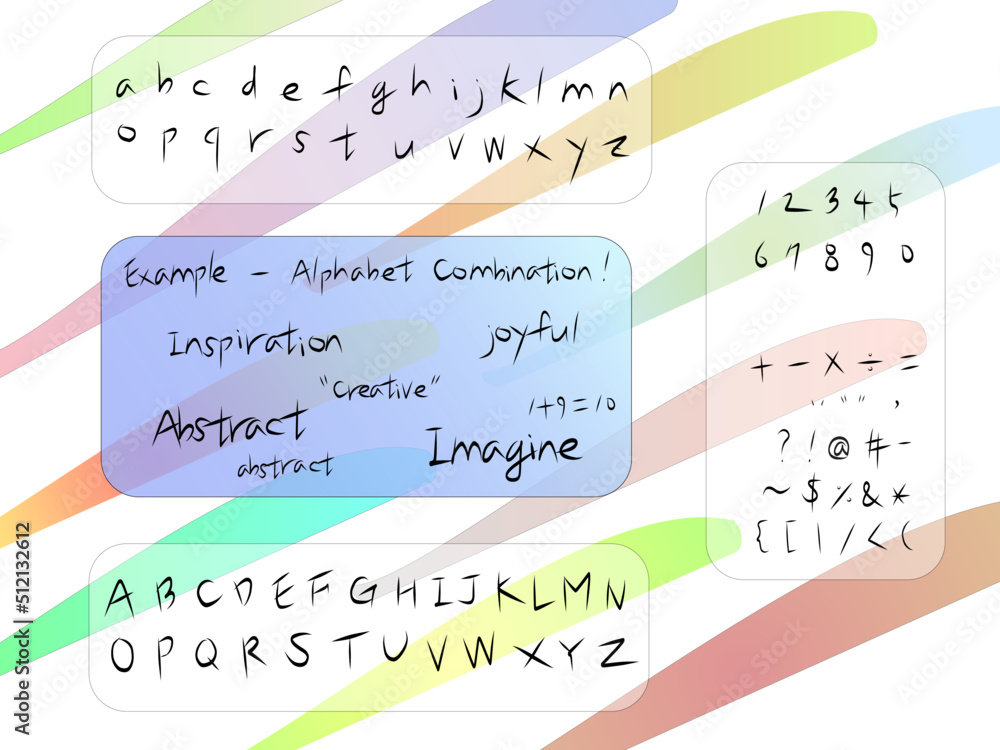 a b c d e f g h i j k l m n
o p q r s t u v w x y z
Example - Alphabet Combination!
Inspiration
joyful
"Creative"
1+9=10
Abstract
Imagine
abstract
A B C D E F G H I J K L M N
O P Q R S T U V W X Y Z
1 2 3 4 5
6 7 8 9 0
+ - × ÷ =
' ' " " ,
? ! @ # -
~ $ % & *
{ [ | / < (
Adobe Stock | #512132612